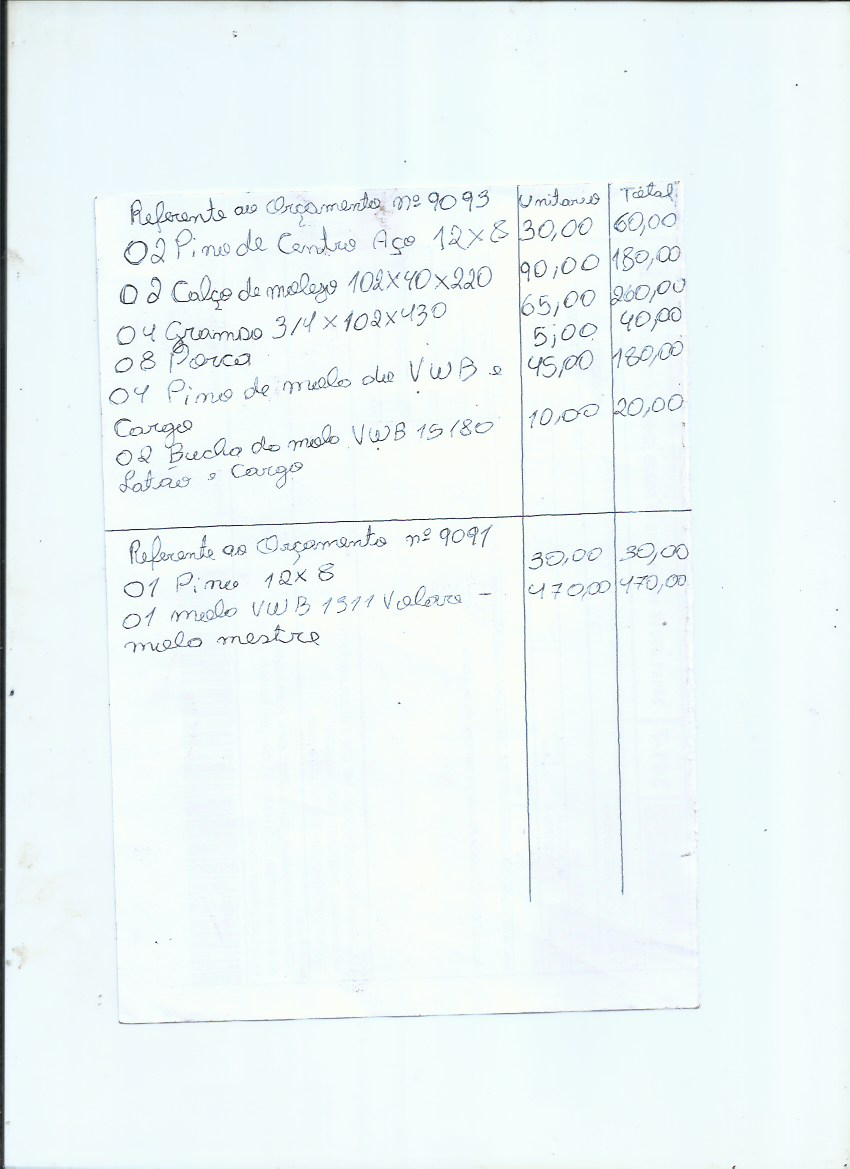 Referente ao Orçamento nº 9093 Unitario Total
02 Pino de Centro Aço 12x8 30,00 60,00
02 Calço de molejo 102x40x220 90,00 180,00
04 Grampo 3/4 x 102x430 65,00 260,00
08 Porca 5,00 40,00
04 Pino de mola de VWB e 45,00 180,00
Carga
02 Bucha da mola VWB 15180 10,00 20,00
Latão e Carga
Referente ao Orçamento nº 9091
01 Pino 12x8 30,00 30,00
01 mola VWB 1311 Volare - 470,00 470,00
mola mestre